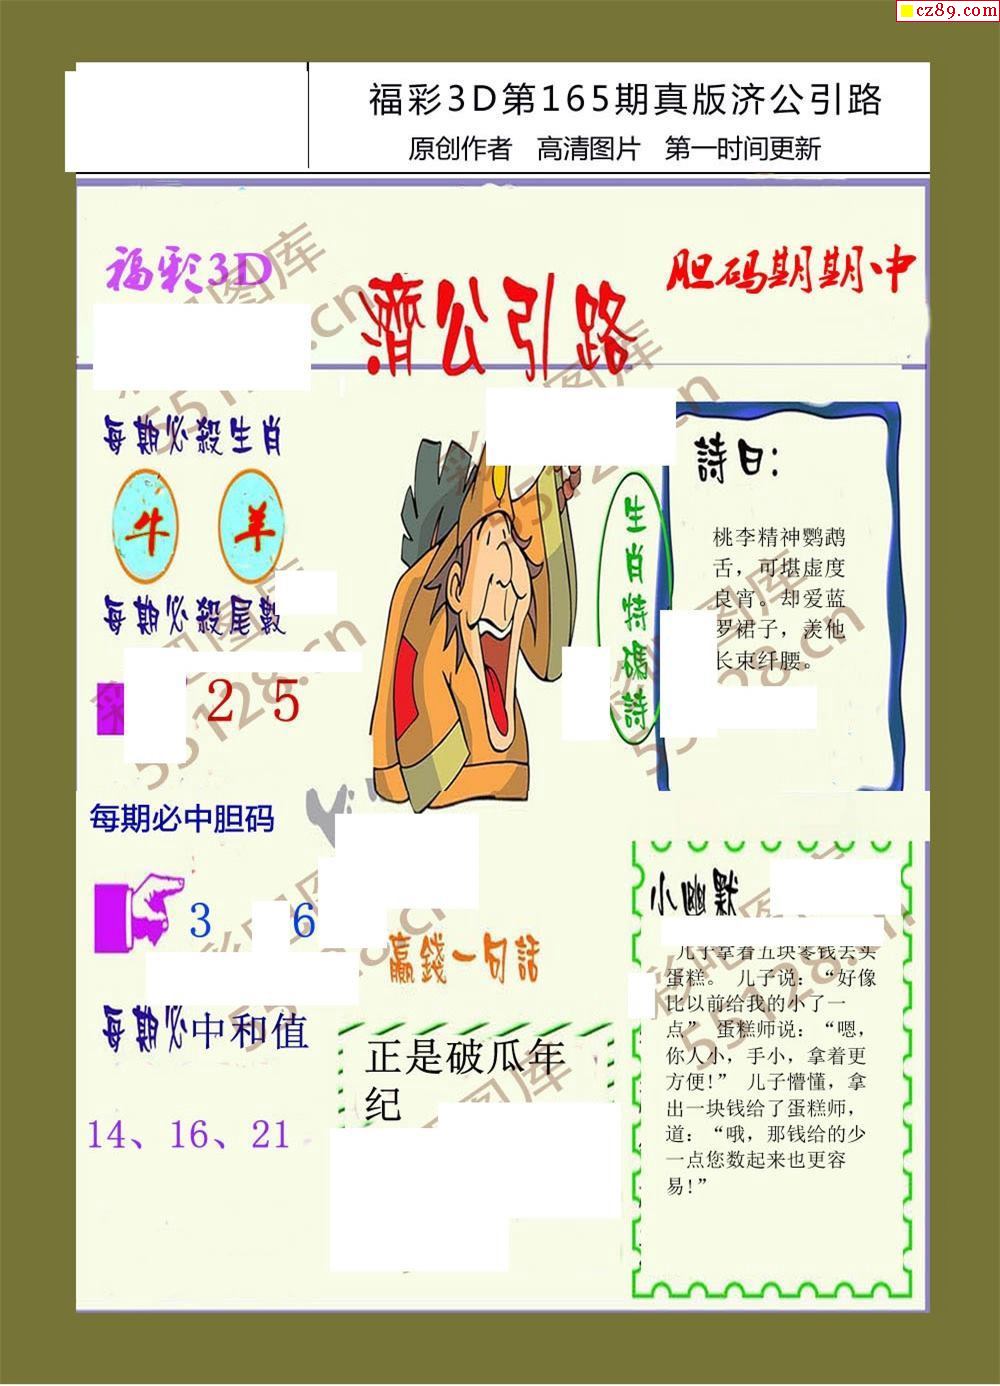 cz89.com
福彩3D第165期真版济公引路
原创作者 高清图片 第一时间更新
福彩3D
濟公引路
胆码期期中
每期必殺生肖
牛 羊
每期必殺尾數
2 5
每期必中胆码
3 6
每期必中和值
14、16、21
生肖特碼詩
詩曰:
桃李精神鹦鹉
舌，可堪虚度
良宵。却爱蓝
罗裙子，羡他
长束纤腰。
赢錢一句話
正是破瓜年
纪
小幽默
儿子拿着五块零钱去买
蛋糕。 儿子说：“好像
比以前给我的小了一
点” 蛋糕师说：“嗯，
你人小，手小，拿着更
方便!” 儿子懵懂，拿
出一块钱给了蛋糕师，
道：“哦，那钱给的少
一点您数起来也更容
易!”
彩吧图库
55128.cn